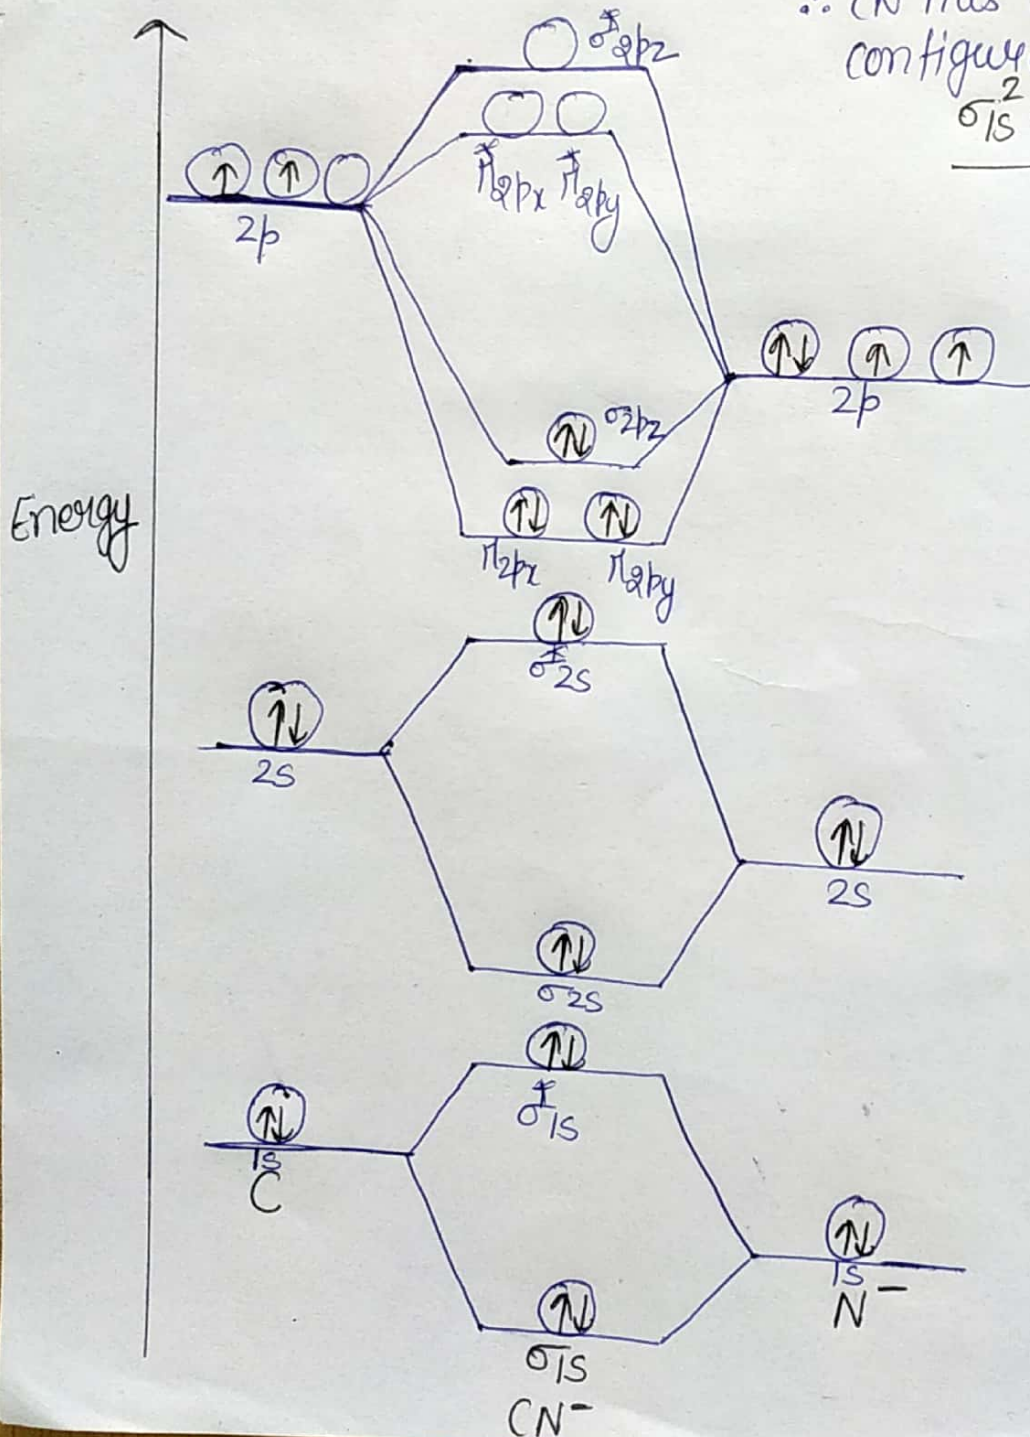 ∴ CN
configur
σ1s²
σ*2pz
π*2px π*2py
2p
2p
σ2pz
Energy
π2px π2py
σ*2s
2s
2s
σ2s
σ*1s
1s
C
1s
N⁻
σ1s
CN⁻